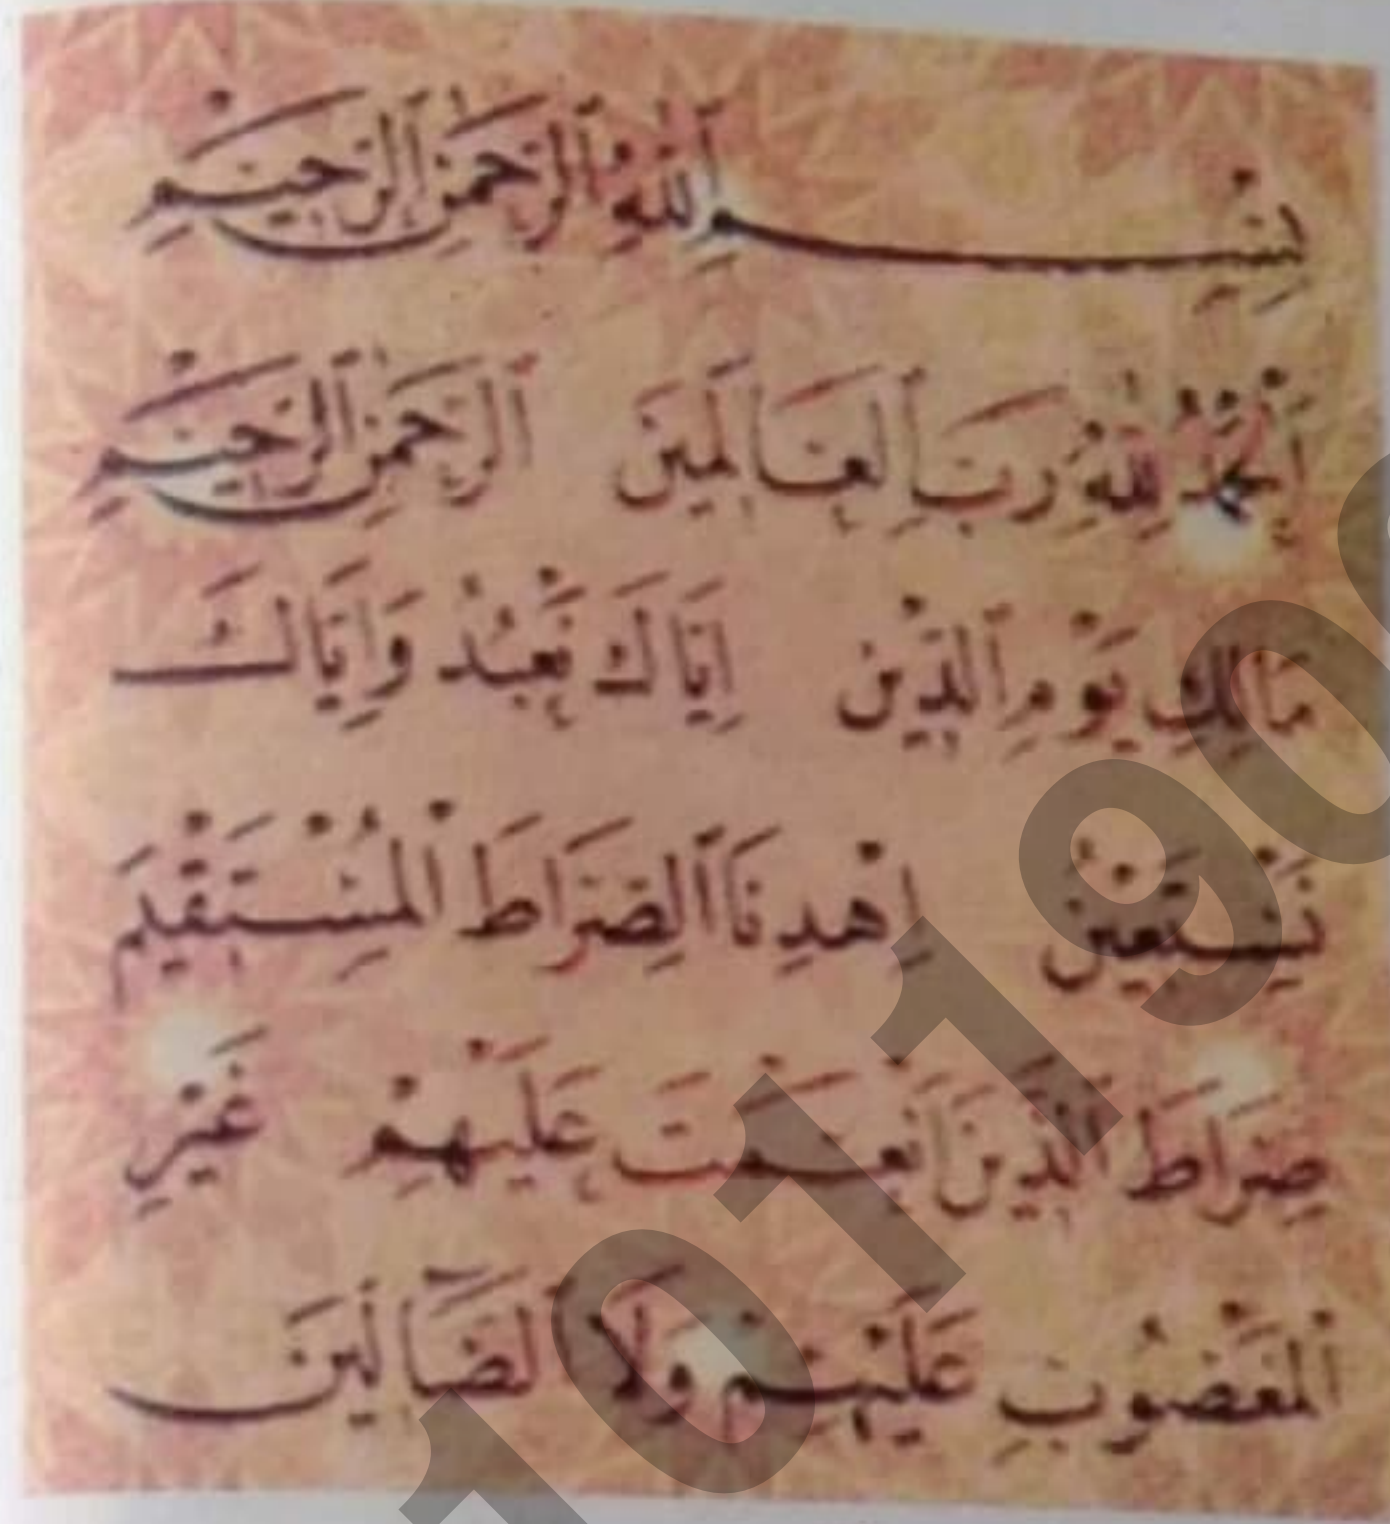 بِسْمِ ٱللهِ ٱلرَّحْمَٰنِ ٱلرَّحِيْمِ
اَلْحَمْدُ لِلّٰهِ رَبِّ ٱلْعَالَمِينَ ٱلرَّحْمَٰنِ ٱلرَّحِيْمِ
مَالِكِ يَوْمِ ٱلدِّيْنِ اِيَّاكَ نَعْبُدُ وَاِيَّاكَ
نَسْتَعِيْنُ اِهْدِنَا ٱلصِّرَاطَ ٱلْمُسْتَقِيْمَ
صِرَاطَ ٱلَّذِيْنَ اَنْعَمْتَ عَلَيْهِمْ غَيْرِ
ٱلْمَغْضُوْبِ عَلَيْهِمْ وَلَا ٱلضَّآلِّيْنَ